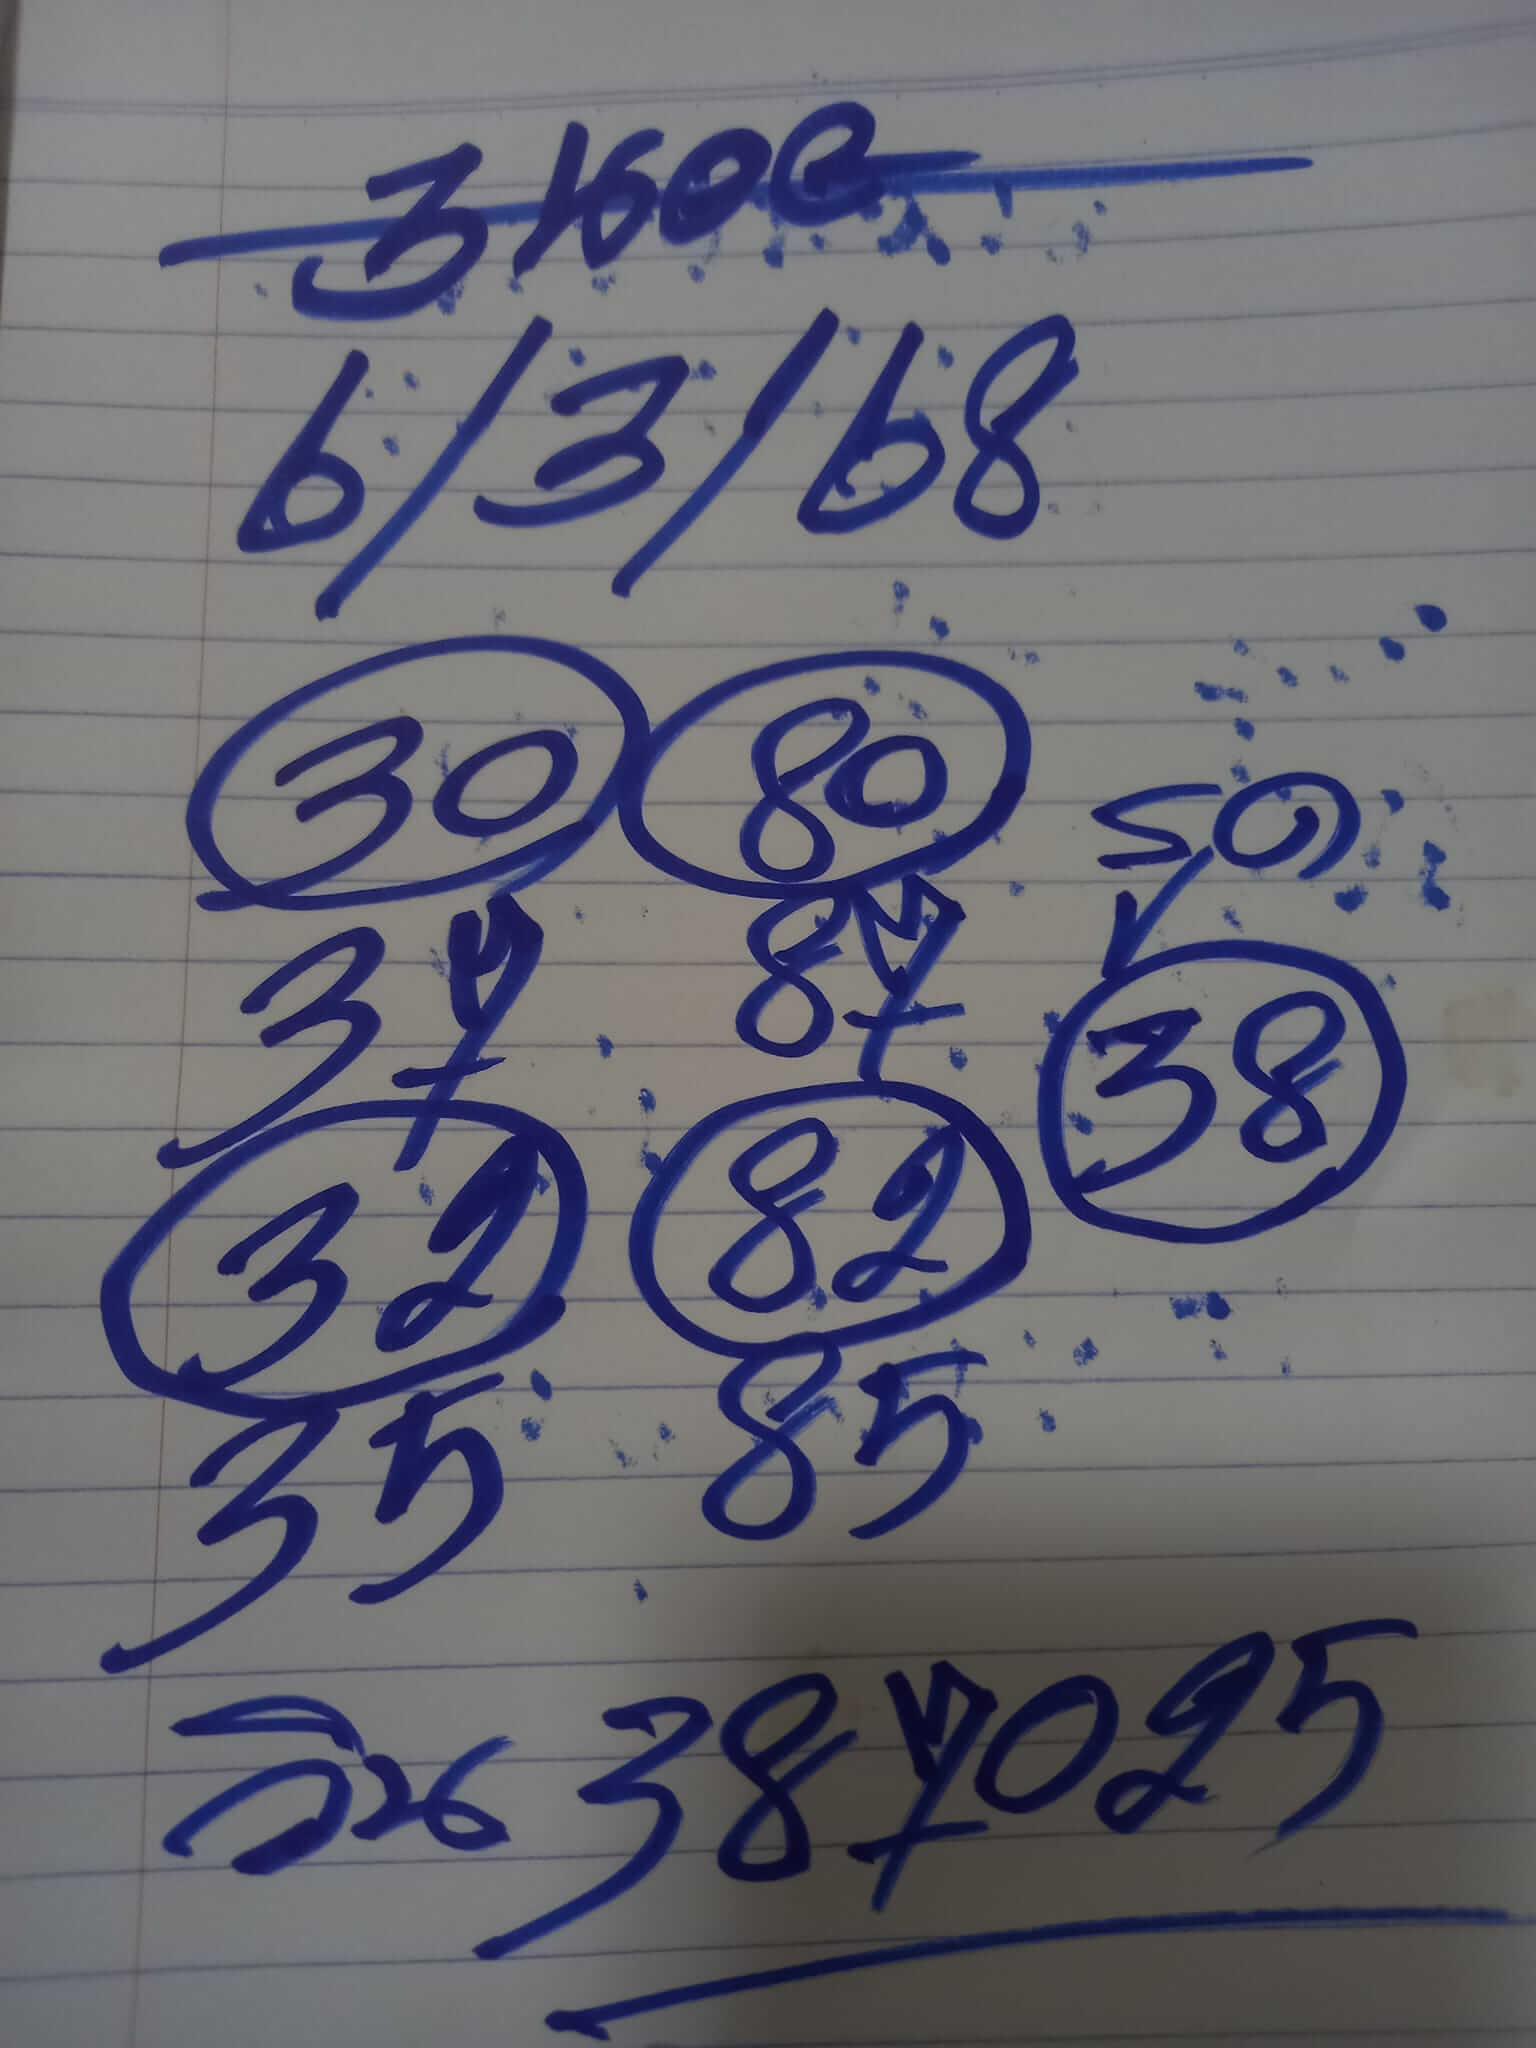 6/3/68
30 80
รอง
37 87
38
32 82
35 85
วิน 387025